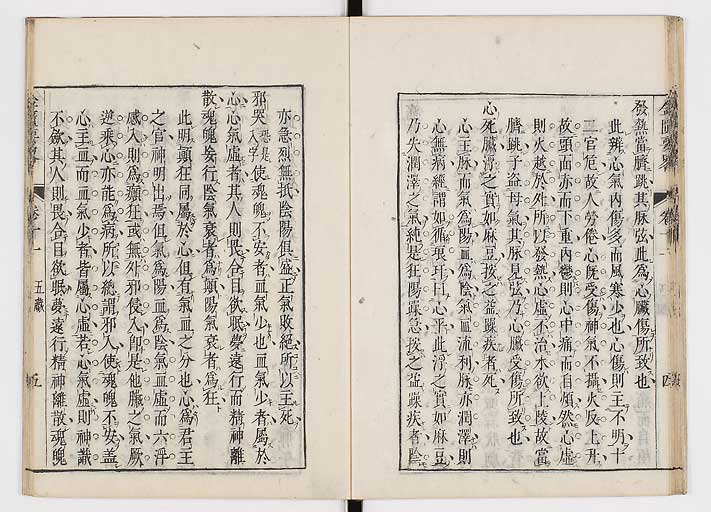 發熱當臍跳其脉弦此爲心臟傷所致也
此辨心氣內傷多而風寒少也心傷則主不明十
二官危故人勞倦心旣受傷神氣不攝火反上升
故頭面赤而下重內鬱則心中痛而自煩然心虛
則火越於外所以發熱心虛不治水欲上陵故當
臍跳子盜母氣其脉見弦乃心臟受傷所致也
心死臟浮之實如麻豆按之益躁疾者死
心主脉而氣爲陽血爲陰氣血流利脉亦潤澤則
心無病經謂如循琅玕曰心平此浮之實如麻豆
乃失潤澤之氣純是狂陽躁急按之益躁疾者陰
亦急烈無抵陰陽俱盛正氣敗絕所以主死
邪哭使魂魄不安者血氣少也血氣少者屬於
心心氣虛者其人則畏合目欲眠夢遠行而精神離
散魂魄妄行陰氣衰者爲顚陽氣衰者爲狂
此明顚狂同屬於心但有氣血之分也心爲君主
之官神明出焉但氣爲陽血爲陰氣血虛而六淫
感入則爲癲狂或無外邪侵入卽是他臟之氣厥
逆乘心亦能爲病所以總謂邪入使魂魄不安蓋
心主血而血氣少者皆屬心虛若心氣虛則神識
不斂其人則畏合目欲眠夢遠行精神離散魂魄
卷十一
五臟
五